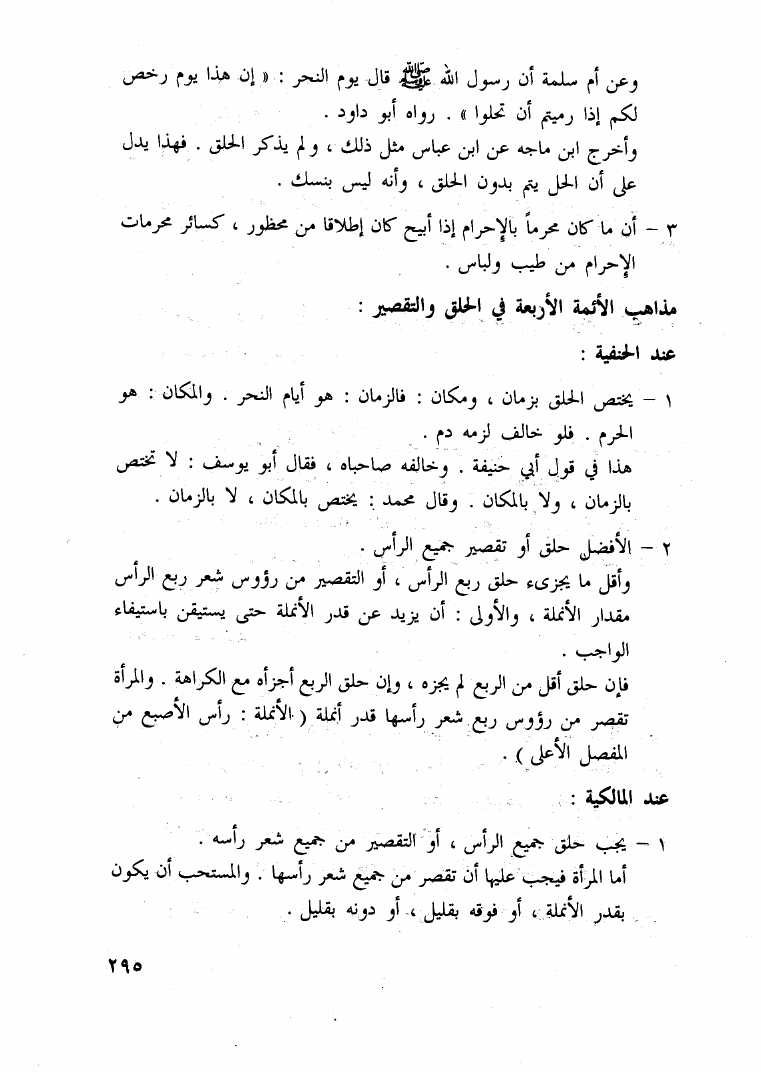 وعن أم سلمة أن رسول الله ﷺ قال يوم النحر : « إن هذا يوم رخص
لكم إذا رميتم أن تحلوا » . رواه أبو داود .
وأخرج ابن ماجه عن ابن عباس مثل ذلك ، ولم يذكر الحلق . فهذا يدل
على أن الحل يتم بدون الحلق ، وأنه ليس بنسك .
٣ – أن ما كان محرماً بالإحرام إذا أبيح كان إطلاقا من محظور ، كسائر محرمات
الإحرام من طيب ولباس .
مذاهب الأئمة الأربعة في الحلق والتقصير :
عند الحنفية :
١ – يختص الحلق بزمان ، ومكان : فالزمان : هو أيام النحر . والمكان : هو
الحرم . فلو خالف لزمه دم .
هذا في قول أبي حنيفة . وخالفه صاحباه ، فقال أبو يوسف : لا تختص
بالزمان ، ولا بالمكان . وقال محمد : يختص بالمكان ، لا بالزمان .
٢ – الأفضل حلق أو تقصير جميع الرأس .
وأقل ما يجزىء حلق ربع الرأس ، أو التقصير من رؤوس شعر ربع الرأس
مقدار الأنملة ، والأولى : أن يزيد عن قدر الأنملة حتى يستيقن باستيفاء
الواجب .
فإن حلق أقل من الربع لم يجزه ، وإن حلق الربع أجزأه مع الكراهة . والمرأة
تقصر من رؤوس ربع شعر رأسها قدر أنملة ( الأنملة : رأس الأصبع من
المفصل الأعلى ) .
عند المالكية :
١ – يجب حلق جميع الرأس ، أو التقصير من جميع شعر رأسه .
أما المرأة فيجب عليها أن تقصر من جميع شعر رأسها . والمستحب أن يكون
بقدر الأنملة ، أو فوقه بقليل ، أو دونه بقليل .
٢٩٥